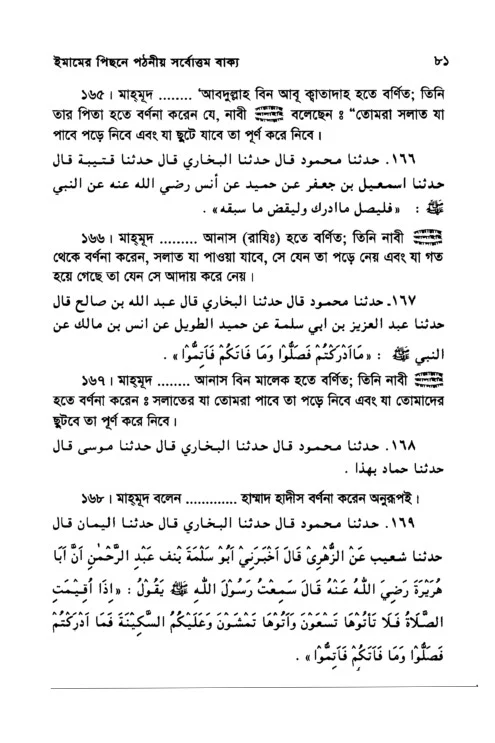 ইমামের পিছনে পঠনীয় সর্বোত্তম বাক্য ৮১
১৬৫। মাহ্‌মূদ ........ ‘আবদুল্লাহ বিন আবূ ক্বাতাদাহ হতে বর্ণিত; তিনি
তার পিতা হতে বর্ণনা করেন যে, নাবী ﷺ বলেছেন ঃ “তোমরা সলাত যা
পাবে পড়ে নিবে এবং যা ছুটে যাবে তা পূর্ণ করে নিবে।
١٦٦. حدثنا محمود قال حدثنا البخاري قال حدثنا قتيبة قال
حدثنا اسمعيل بن جعفر عن حميد عن أنس رضي الله عنه عن النبي
ﷺ : «فليصل ماادرك وليقض ما سبقه» .
১৬৬। মাহ্‌মূদ ......... আনাস (রাযিঃ) হতে বর্ণিত; তিনি নাবী ﷺ
থেকে বর্ণনা করেন, সলাত যা পাওয়া যাবে, সে যেন তা পড়ে নেয় এবং যা গত
হয়ে গেছে তা যেন সে আদায় করে নেয়।
١٦٧. حدثنا محمود قال حدثنا البخاري قال عبد الله بن صالح قال
حدثنا عبد العزيز بن ابي سلمة عن حميد الطويل عن انس بن مالك عن
النبي ﷺ : «مَاأَدْرَكْتُمْ فَصَلُّوْا وَمَا فَاتَكُمْ فَأَتِمُّوْا» .
১৬৭। মাহ্‌মূদ ........ আনাস বিন মালেক হতে বর্ণিত; তিনি নাবী ﷺ
হতে বর্ণনা করেন ঃ সলাতের যা তোমরা পাবে তা পড়ে নিবে এবং যা তোমাদের
ছুটবে তা পূর্ণ করে নিবে।
١٦٨. حدثنا محمود قال حدثنا البخاري قال حدثنا موسى قال
حدثنا حماد بهذا .
১৬৮। মাহ্‌মূদ বলেন ............. হাম্মাদ হাদীস বর্ণনা করেন অনুরূপই।
١٦٩. حدثنا محمود قال حدثنا البخاري قال حدثنا اليمان قال
حدثنا شعيب عَنْ الزُّهْرِىْ قَالَ أَخْبَرَنِيْ أَبُوْ سَلْمَةَ بْنُف عَبْدِ الرَّحْمٰنِ أَنَّ أَبَا
هُرَيْرَةَ رَضِيَ اللهُ عَنْهُ قَالَ سَمِعْتُ رَسُوْلَ اللهِ ﷺ يَقُوْلُ : «إِذَا أُقِيْمَتِ
الصَّلَاةُ فَلَا تَأْتُوْهَا تَسْعَوْنَ وَأْتُوْهَا تَمْشُوْنَ وَعَلَيْكُمُ السَّكِيْنَةَ فَمَا أَدْرَكْتُمْ
فَصَلُّوْا وَمَا فَاتَكُمْ فَأَتِمُّوْا» .